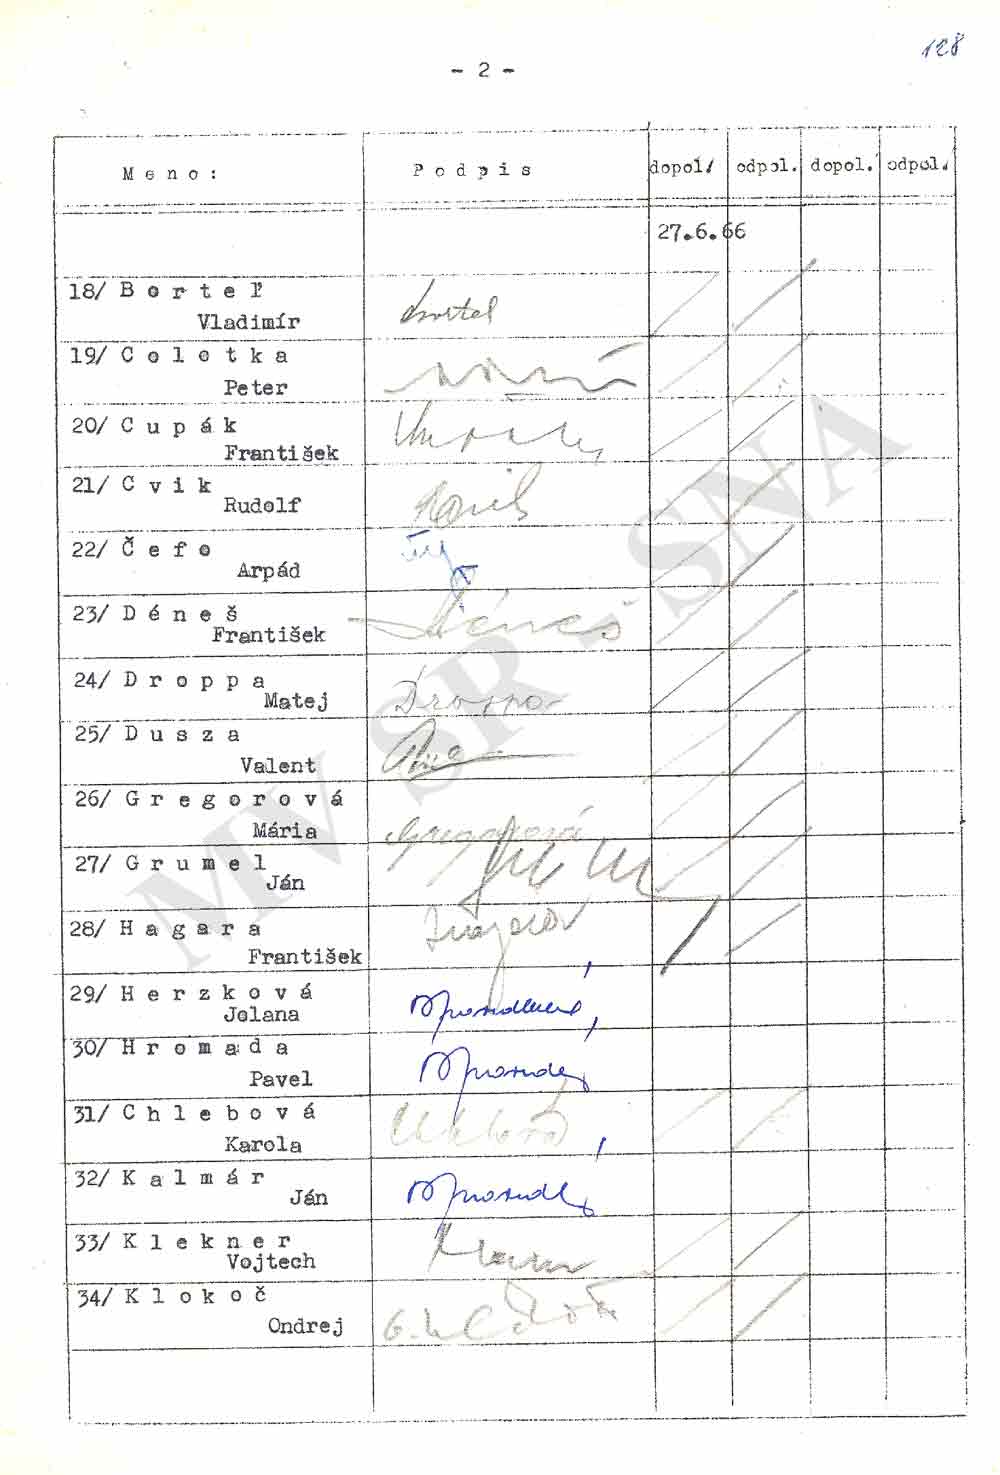 128
- 2 -
Meno: Podpis dopol/ odpol. dopol. odpol.
27.6.66
18/ Borteľ
Vladimír
19/ Colotka
Peter
20/ Cupák
František
21/ Cvik
Rudolf
22/ Čefo
Arpád
23/ Déneš
František Déneš
24/ Droppa
Matej Droppa
25/ Dusza
Valent
26/ Gregorová
Mária Gregorová
27/ Grumel
Ján
28/ Hagara
František
29/ Herzková
Jolana
30/ Hromada
Pavel
31/ Chlebová
Karola Chlebová
32/ Kalmár
Ján
33/ Klekner
Vojtech
34/ Klokoč
Ondrej
MV SR - SNA